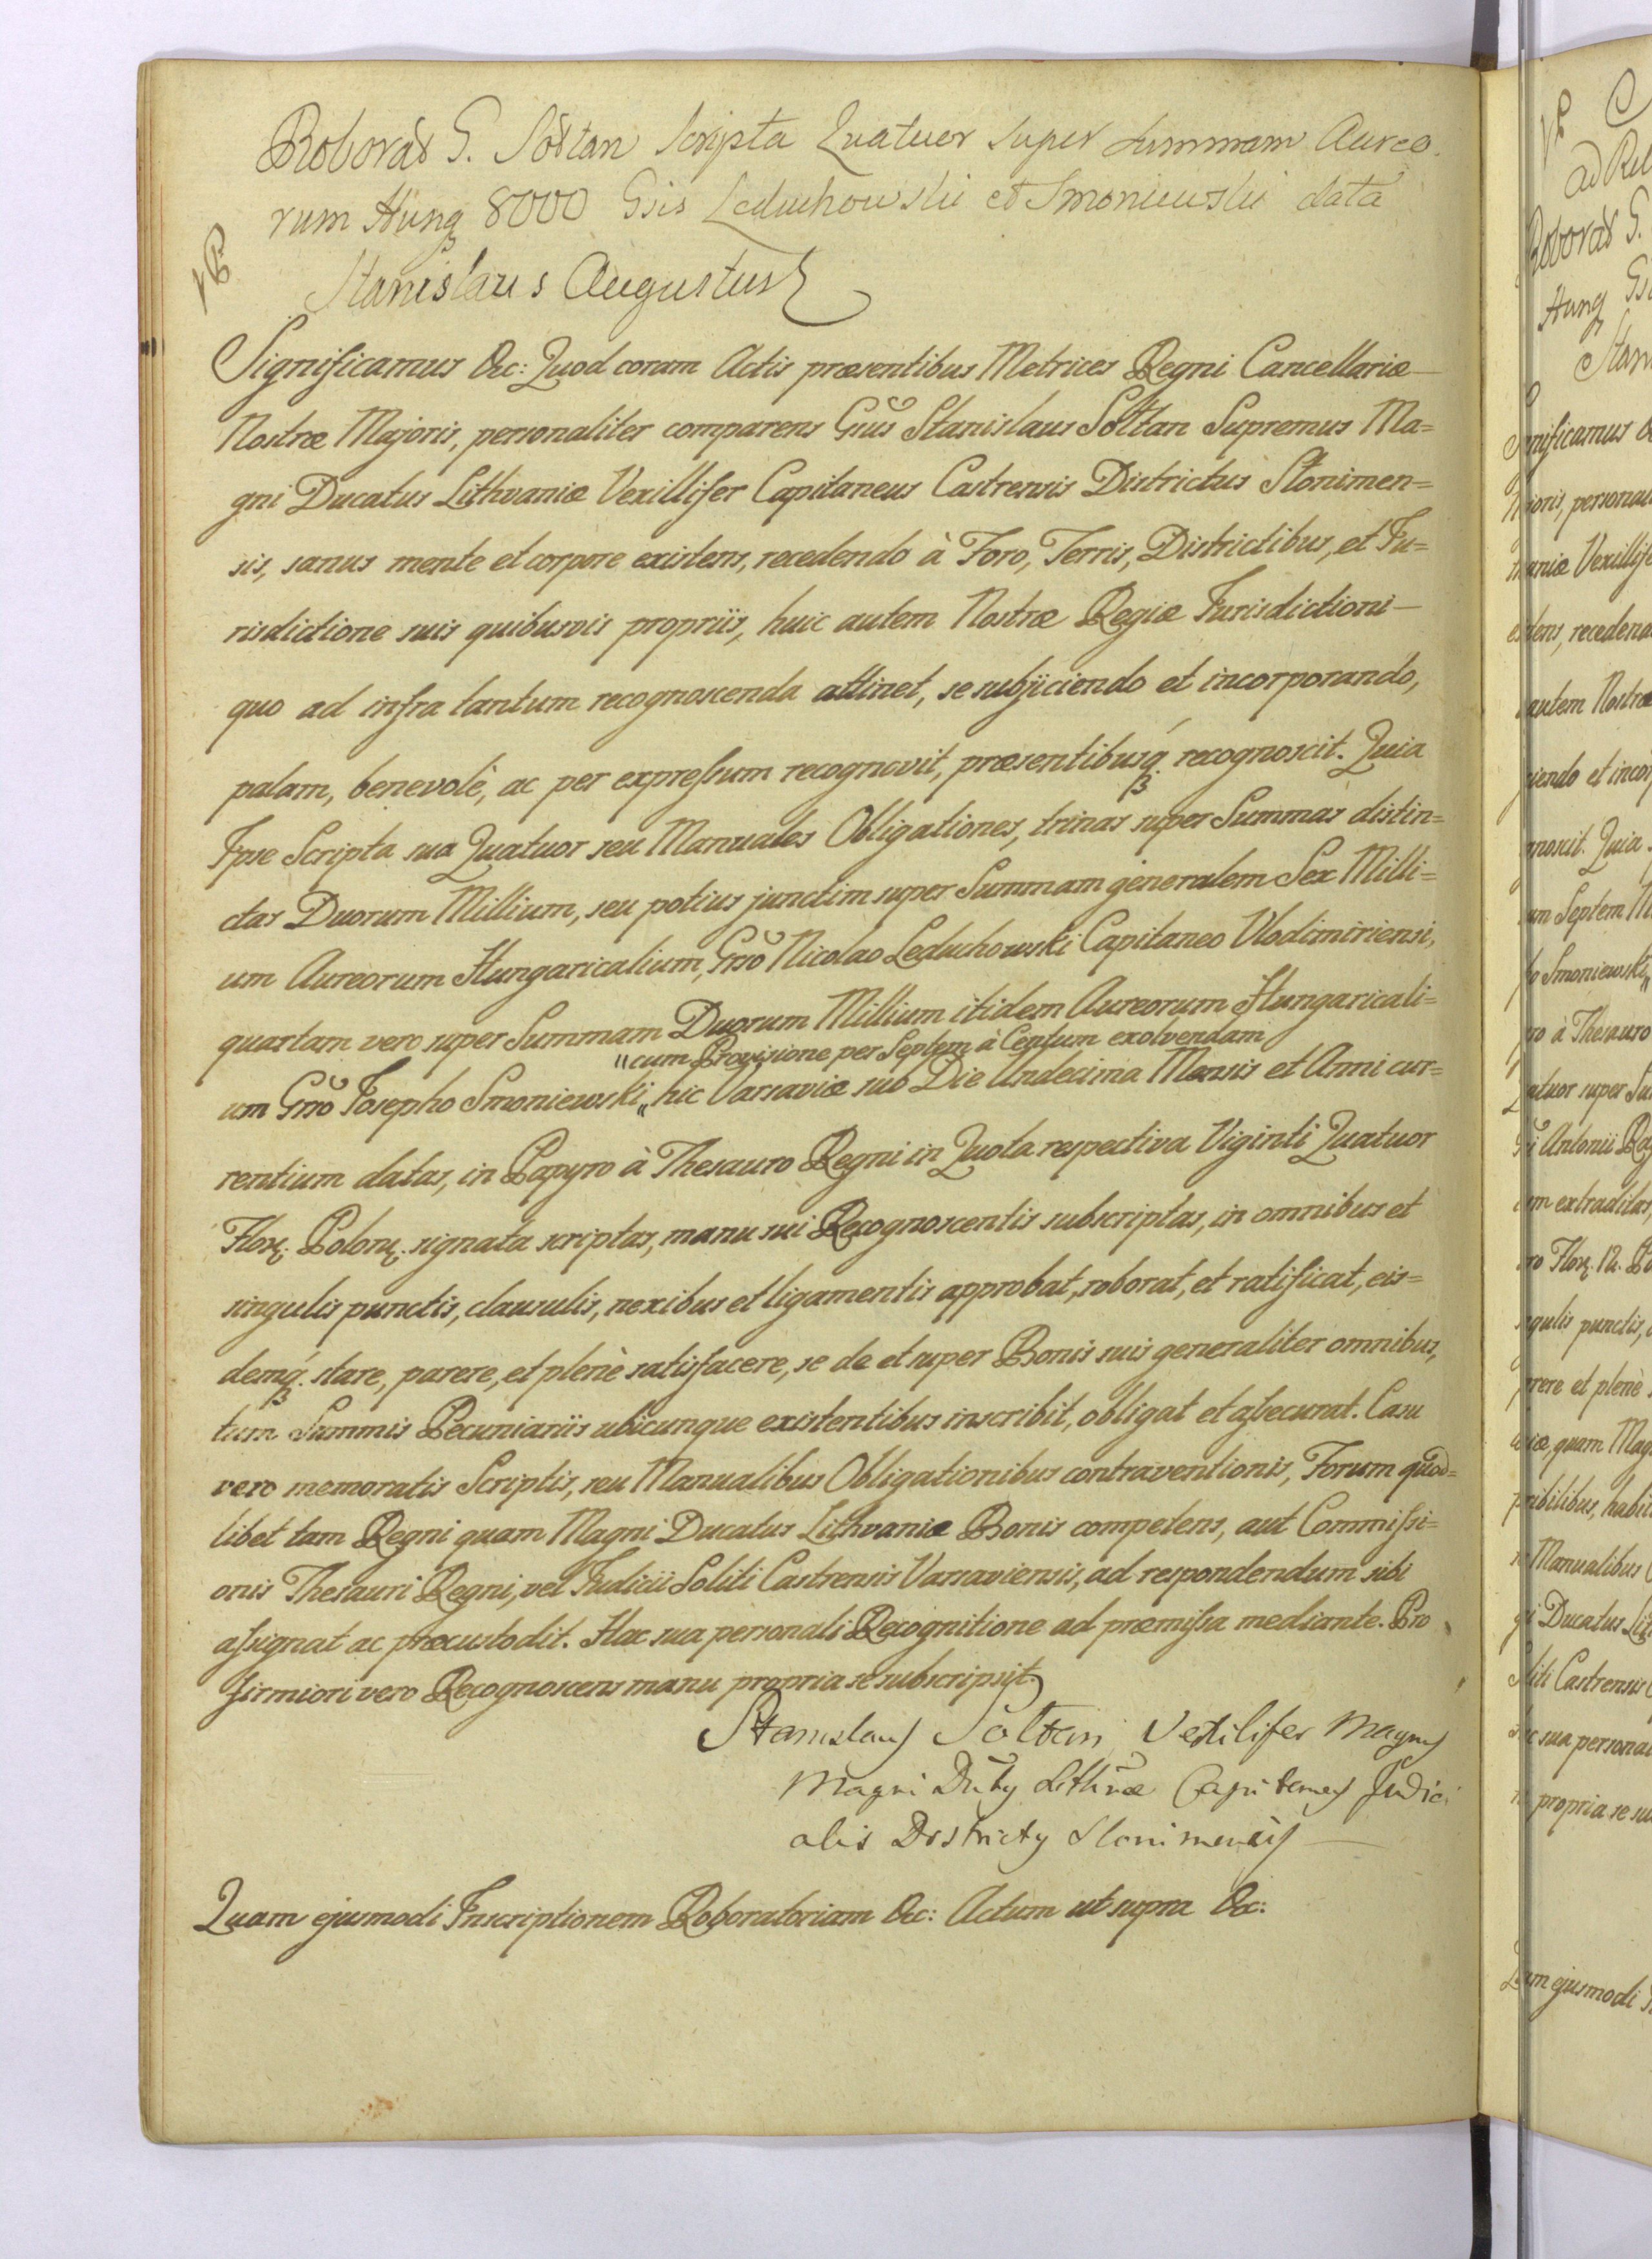 Roborat G. Sołtan Scripta Quatuor super Summam Aureo-
rum Hung 8000 Gsis Leduchowski et Smoniewski data
Stanislaus Augustus
Significamus &c: Quod coram Actis præsentibus Metrices Regni Cancellariæ
Nostræ Majoris, personaliter comparens Gsus Stanislaus Sołtan Supremus Ma=
gni Ducatus Lithvaniæ Vexillifer Capitaneus Castrensis Districtus Słonimen=
sis, sanus mente et corpore existens, recedendo à Foro, Terris, Districtibus, et Ju=
risdictione suis quibusvis propriis, huic autem Nostræ Regiæ Jurisdictioni
quo ad infra tantum recognoscenda attinet, se subjiciendo et incorporando,
palam, benevolè, ac per expreſsum recognovit, præsentibusq. recognoscit. Quia
Ipse Scripta sua Quatuor seu Manuales Obligationes, trinas super Summas distin=
ctas Duorum Millium, seu potius junctim super Summam generalem Sex Milli=
um Aureorum Hungaricalium, Gsso Nicolao Leduchowski Capitaneo Vlodimiriensi,
quartam vero super Summam Duorum Millium itidem Aureorum Hungaricali=
"cum Provisione per Septem à Centum exolvendam
um Gsso Josepho Smoniewski" hic Varsaviæ sub Die Undecima Mensis et Anni cur=
rentium datas, in Papyro à Thesauro Regni in Quota respectiva Viginti Quatuor
Flor. Polon. signata scriptas, manu sui Recognoscentis subscriptas, in omnibus et
singulis punctis, clausulis, nexibus et ligamentis approbat, roborat, et ratificat, eis=
demq. stare, parere, et plenè satisfacere, se de et super Bonis suis generaliter omnibus,
tum Summis Pecuniariis ubicunque existentibus inscribit, obligat et aſsecurat. Casu
vero memoratis Scriptis, seu Manualibus Obligationibus contraventionis, Forum quod=
libet tam Regni quam Magni Ducatus Lithvaniæ Bonis competens, aut Commiſsi=
onis Thesauri Regni, vel Judicii Soliti Castrensis Varsaviensis, ad respondendum sibi
aſsignat ac præcustodit. Hac sua personali Recognitione ad præmiſsa mediante. Pro
firmiori vero Recognoscens manu propria se subscripsit.
Stanislaus Sołtan Vexilifer Magnus
Magni Ducatus Lithvæ Capitaneus Judici
alis Districtus Słonimensis
Quam ejusmodi Inscriptionem Roboratoriam &c: Actum ut supra &c: